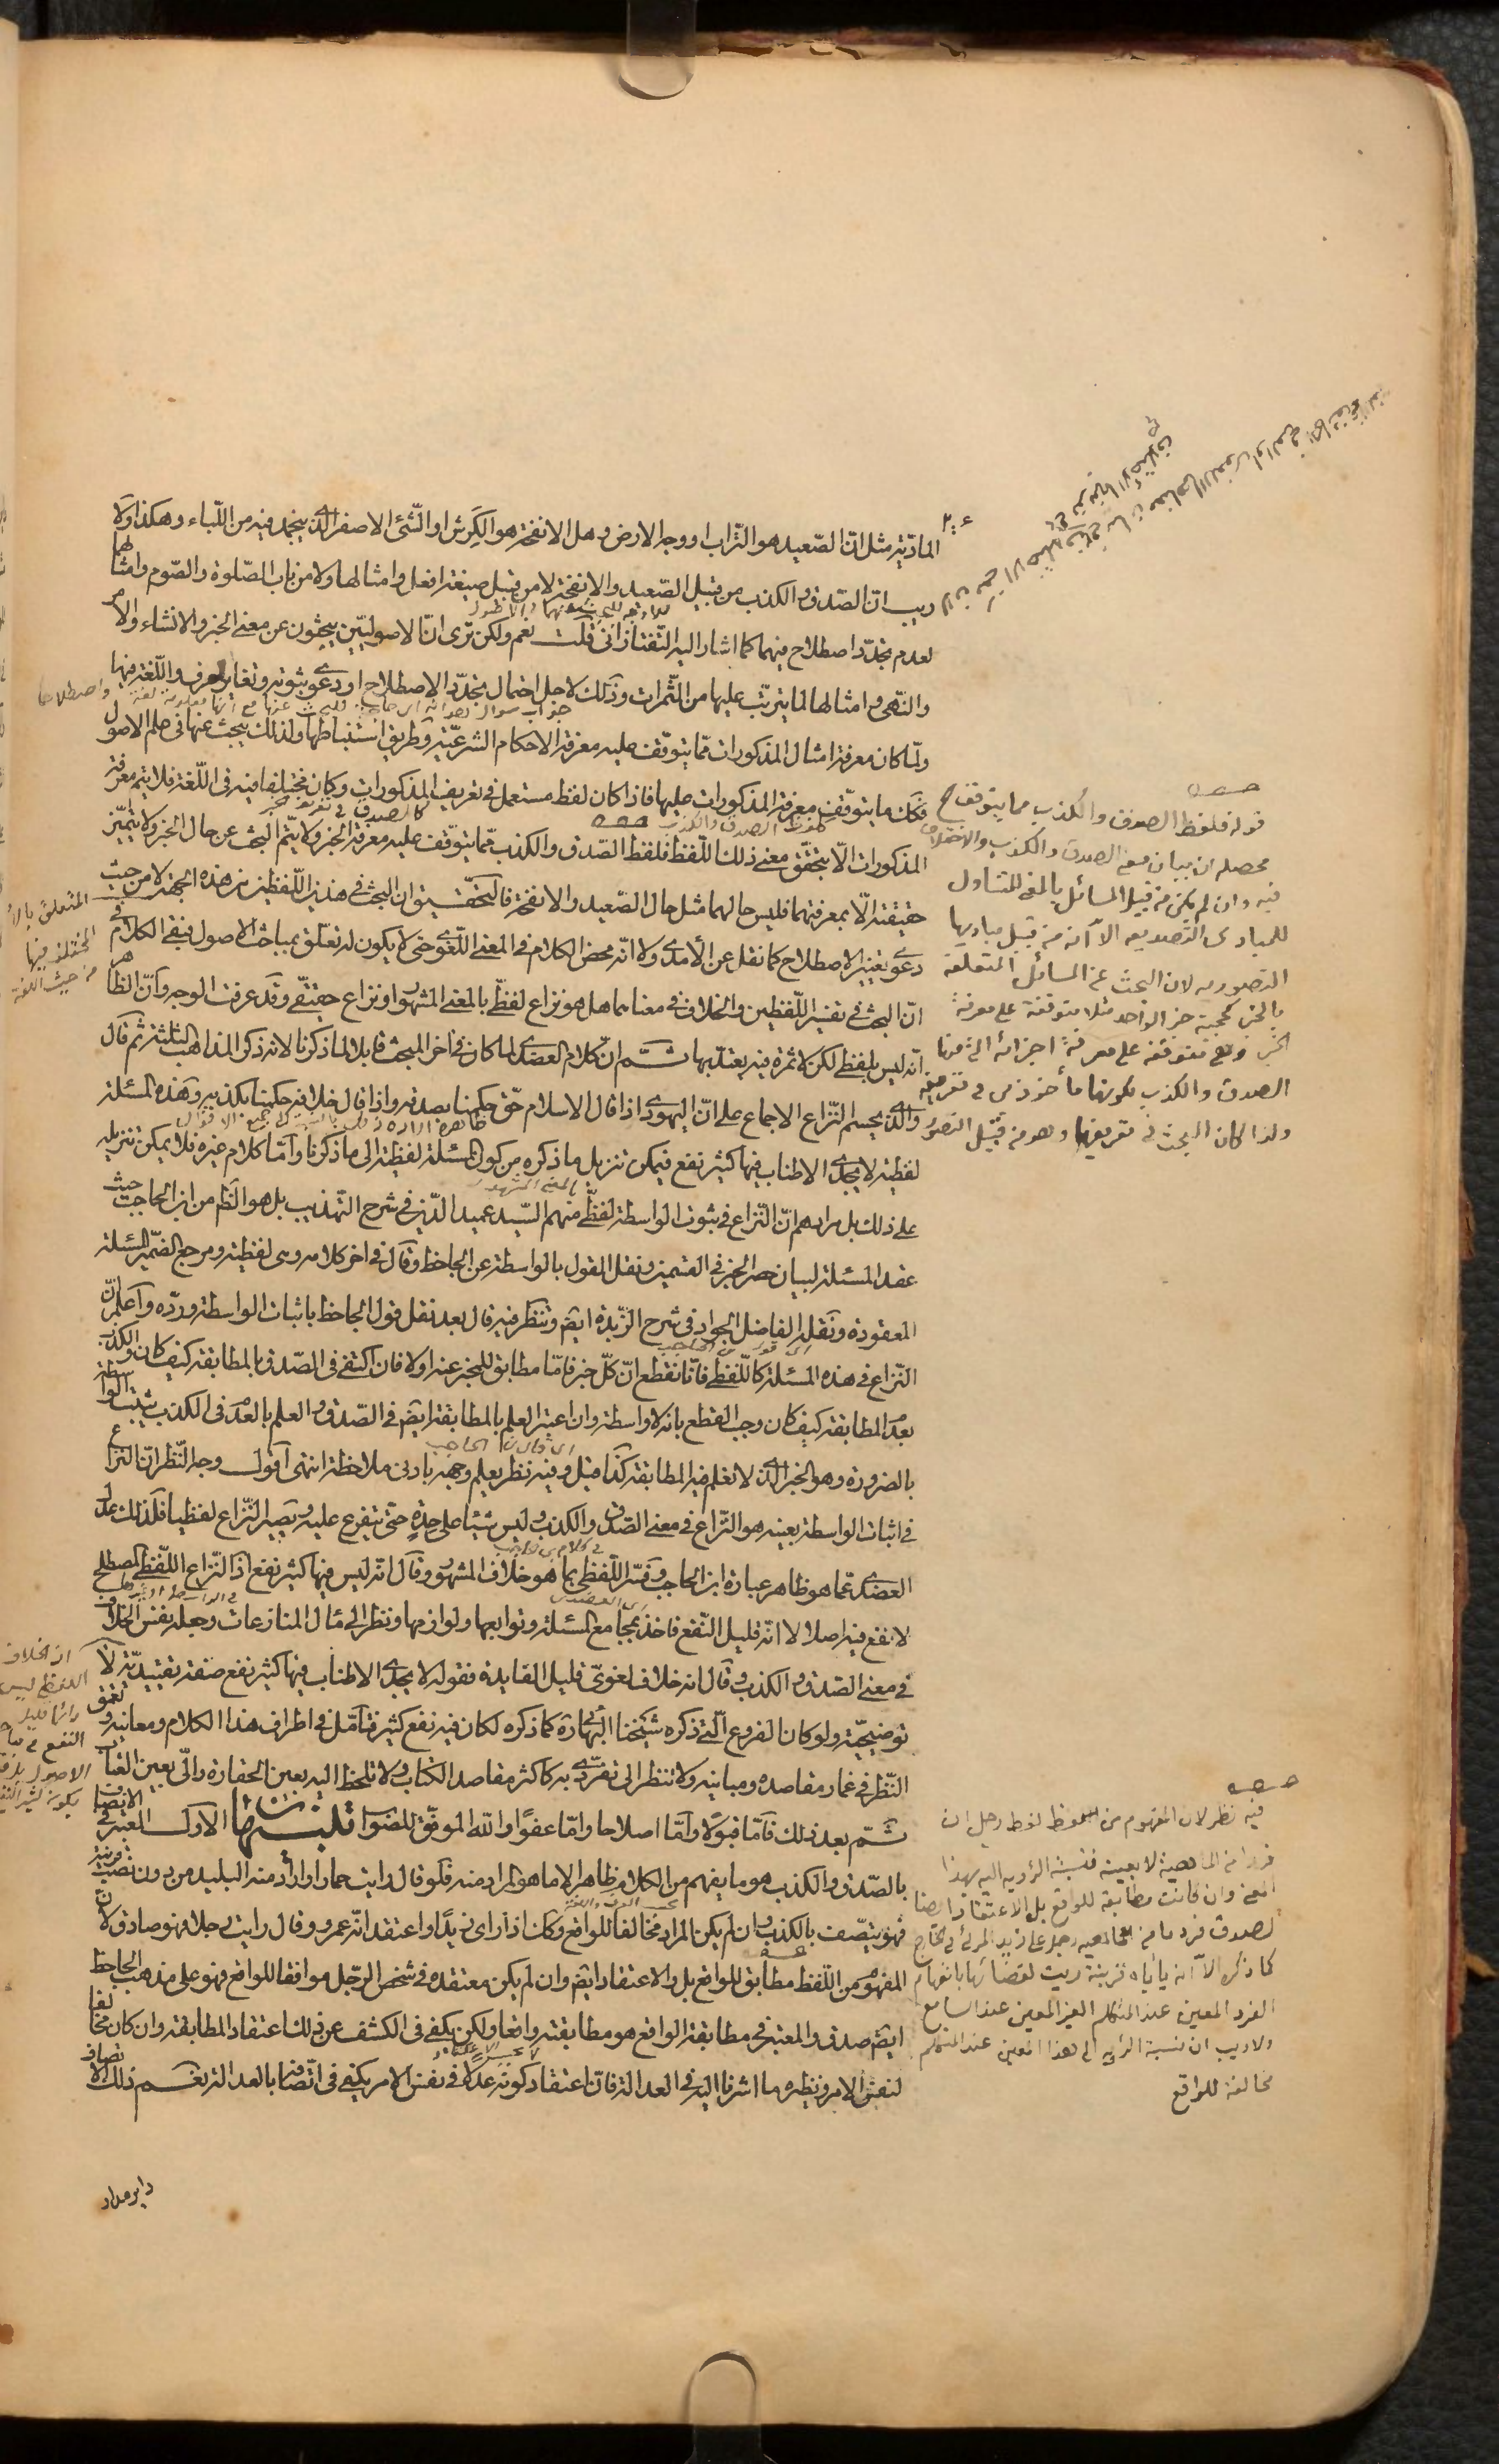 المادّية مثل انّ الصّعيد هو التّراب او وجه الارض وهل الانفحة هو الكَرِش او الشّئ الاصفر الّذى ينجمد فيه من اللّباء وهكذا ولا
ريب انّ الصّدق والكذب من قبيل الصّعيد والانفحة لا من قبيل صيغة افعل وامثالها ولا من باب الصّلوة والصّوم وامثالهما
لعدم تجدّد اصطلاح فيهما كما اشار اليه التّفتازانى قلت نعم ولكن ترى انّ الاصوليّين يبحثون عن معنى الخبر والانشاء والامر
والنّهى وامثالها لما يترتّب عليها من الثّمرات وذلك لاجل احتمال تجدّد الاصطلاح او دعوى ثبوته وتغاير العرف واللّغة فيها
ولمّا كان معرفة امثال المذكورات ممّا يتوقّف عليه معرفة الاحكام الشرعيّة وطريق استنباطها ولذلك يبحث عنها فى علم الاصول
فكك ما يتوقّف معرفة المذكورات عليها فاذا كان لفظ مستعمل فى تعريف المذكورات وكان مختلفا فيه فى اللّغة فلا يتم معرفة
المذكورات الّا بتحقّق معنى ذلك اللّفظ فلفظ الصّدق والكذب ممّا يتوقّف عليه معرفة الخبر ولا يتّم البحث عن حال الخبر ولا يتميّز
حقيقته الّا بمعرفتهما فليس حالهما مثل حال الصّعيد والانفحة فالتحقيق ان البحث فى هذين اللّفظين من هذه الجهة لا من حيث
دعوى تغيير الاصطلاح كما نقل عن الأمدى ولا انّه محض الكلام فى المعنى اللّغوى حتى لا يكون له تعلّق بمباحث الاصول فبقى الكلام فى
انّ البحث فى تفسير اللّفظين والخلاف فى معناهما هل هو نزاع لفظّى بالمعنى المشهور او نزاع حقيقى وقد عرفت الوجه وانّ الظاهر
انّه ليس بلفظى لكن لا ثمرة فيه يعتدّ بها ثم انّ كلام العضدى لما كان فى اخر المبحث قابلا لما ذكرنا لانه ذكر المذاهب الثلثة ثم قال
والّذى يحسم النّزاع الاجماع على انّ اليهودى اذا قال الاسلام حق حكمنا بصدقه واذا قال خلافه حكمنا بكذبه وهذه المسئلة
لفظية لا يجدى الاطناب فيها كثير نفع فيمكن تنزيل ما ذكره من كون المسئلة لفظية الى ما ذكرنا وامّا كلام غيره فلا يمكن تنزيله
على ذلك بل مرادهم انّ النّزاع فى ثبوت الواسطة لفظّى منهم السّيد عميد الدّين فى شرح التّهذيب بل هو الظم من ابن الحاجب حيث
عقد المسئلة لبيان حصر الخبر فى القسمين ونقل القول بالواسطة عن الجاحظ وقال فى اخر كلامه وهى لفظية ومرجع الضّمير المسئلة
المعقودة ونقله الفاضل الجواد فى شرح الزّبدة ايضا وتنظّر فيه قال بعد نقل قول الجاحظ باثبات الواسطة وردّه واعلم انّ
النّزاع فى هذه المسئلة كاللّفظى فانّا نقطع انّ كلّ خبر فامّا مطابق للمخبر عنه اولا فان اكتفى فى الصّدق بالمطابقة كيف كان والكذب
بعدم المطابقة كيف كان وجب القطع بانه لا واسطة وان اعتبر العلم بالمطابقة ايضا فى الصّدق والعلم بالعدم فى الكذب ثبتت الواسطة
بالضرورة وهو الخبر الّذى لا نعلم فيه المطابقة كذا قيل وفيه نظر يعلم وجهه بادنى ملاحظة انتهى اقول وجه النّظر انّ النزاع
فى اثبات الواسطة بعينه هو النّزاع فى معنى الصّدق والكذب وليس شيئا على حِدَةٍ حتى يتفرع عليه ويصير النّزاع لفظيا فلذلك عدل
العضدى عمّا هو ظاهر عبارة ابن الحاجب وفسّر اللّفظى بما هو خلاف المشهور وقال انّه ليس فيها كثير نفع اذ النّزاع اللّفظى المصطلح
لا نفع فيه اصلا لا انّه قليل النّفع فاخذ بمجامع المسئلة وتوابعها ولوازمها ونظر الى مئال المنازعات وجعله نفس الخلاف
فى معنى الصّدق والكذب وقال انه خلاف لغوىّ قليل الفايدة فقوله لا يجدى الاطناب فيها كثير نفع صفة تقييديّة لا
توضيحيّة ولو كان الفروع الّتى ذكره شيخنا البهائى ره كما ذكره لكان فيه نفع كثير فتامّل فى اطراف هذا الكلام ومعانيه وتعمّق
النّظر فى غمار مقاصده ومبانيه ولا تنظر الى تفرّدى به كاكثر مقاصد الكتاب ولا تلحظ اليه بعين الحقارة والّى بعين العتاب
ثمّ بعد ذلك فامّا قبولا وامّا اصلاحا وامّا عفوًا والله الموفّق للصّواب تنبيهان الاول المعتبر فى الاتصاف
بالصّدق والكذب هو ما يفهم من الكلام ظاهرا لا ما هو المراد منه فلو قال رايت حمارا واراد منه البليد من دون نصب قرينة
فهو يتصّف بالكذب وان لم يكن المراد مخالفا للواقع وكك اذا راى زيدًا واعتقد انّه عمرو وقال رايت رجلا فهو صادق لانّ
المفهوم من اللّفظ مطابق للواقع بل والاعتقاد ايضا وان لم يكن معتقده فى شخص الرّجل موافقا للواقع فهو على مذهب الجاحظ
ايضا صدق والمعتبر فى مطابقة الواقع هو مطابقته واقعا ولكن يكفى فى الكشف عن ذلك اعتقاد المطابقة وان كان مخالفا
لنفس الامر ونظيره ما اشرنا اليه فى العدالة فانّ اعتقاد كونه عدلا فى نفس الامر يكفى فى اتّصافنا بالعدالة نعم ذلك الاتصاف
قوله فلفظ الصدق والكذب مما يتوقف الخ
محصله ان بيان معنى الصدق والكذب والاختلاف
فيه وان لم يكن من قبيل المسائل بالمعنى المتناول
للمبادى التصديقيه الّا انه من قبيل مباديها
التصوريه لان البحث عن المسائل المتعلقة
بالخبر كحجية خبر الواحد مثلا متوقفة على معرفة
الخبر وهى متوقفة على معرفة اجزائه التى منها
الصدق والكذب لكونهما مأخوذين فى تعريفه
ولذا كان البحث فى تعريفهما وهو من قبيل التصور
المتعلق
المختلف فيها
من حيث اللغة
فيه نظر لان المفهوم من لفظ رجل ان
فردا من الماهية لا بعينه فنسبة الرؤيه اليه بهذا
المعنى وان كانت مطابقة للواقع بل الاعتقاد ايضا
لصدق فرد ما من ماهيه رجل على زيد المرئى فى الخارج
كما ذكره الّا انه ياباه قرينة رايت لاقتضائها بانفهام
الفرد المعين عند المتكلم الغير المعين عند السامع
ولا ريب ان نسبة الرؤيه الى هذا المعين عند المتكلم
مخالفة للواقع